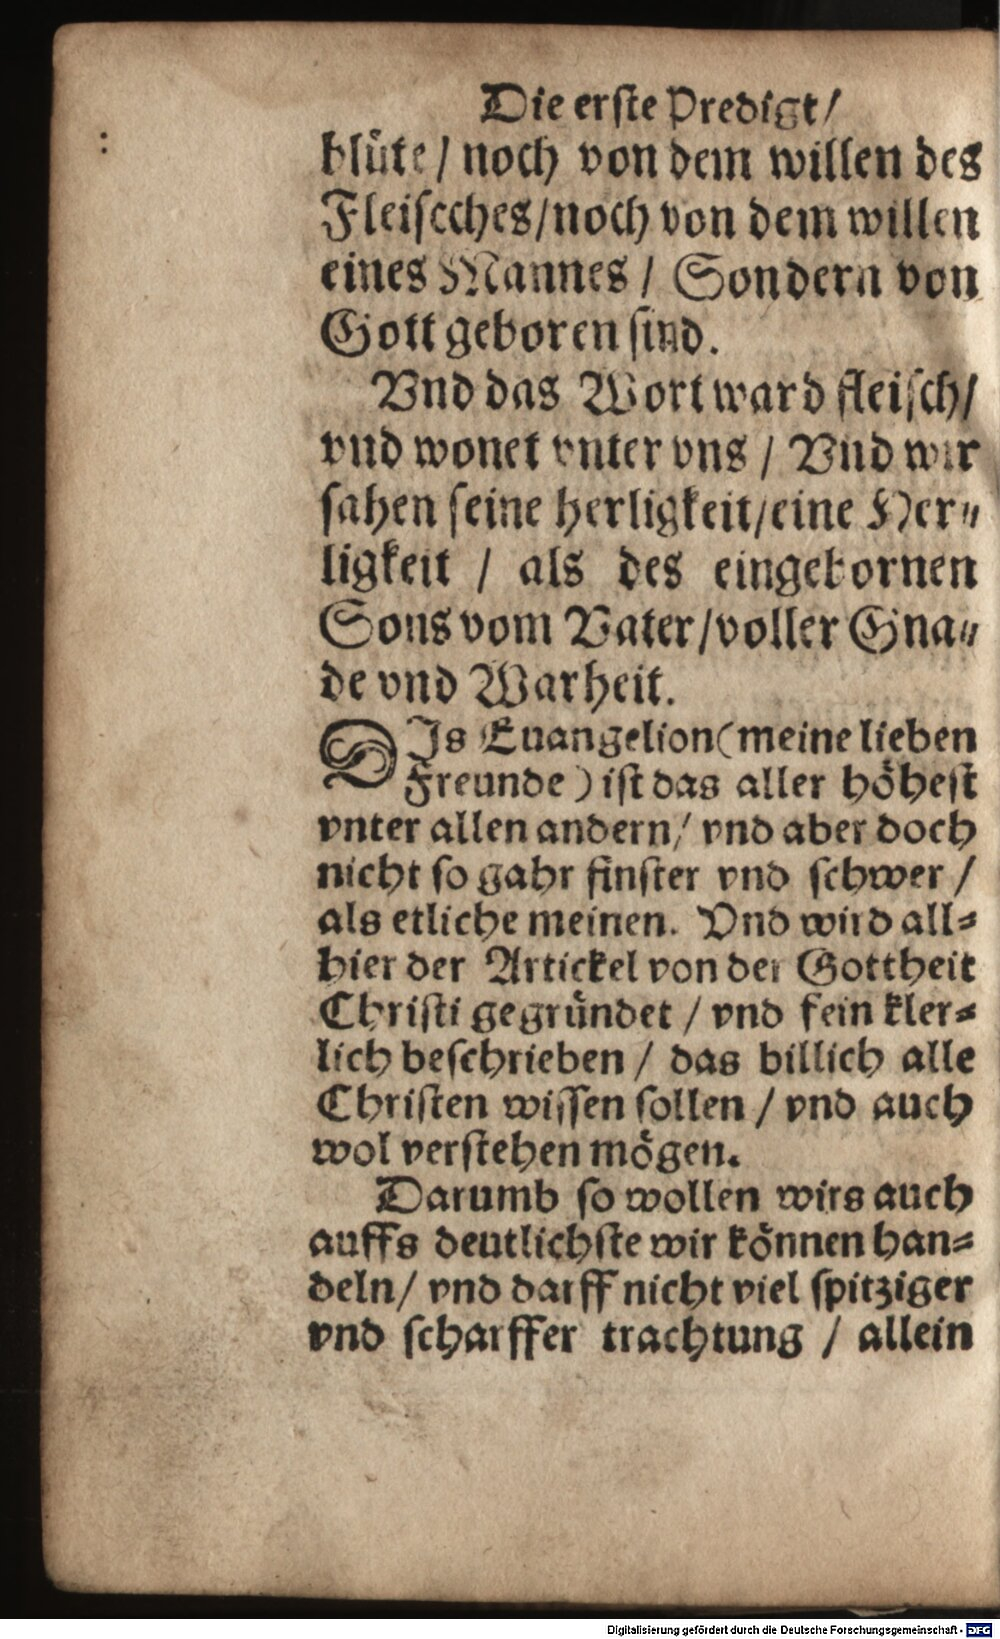 Die erste Predigt/
blüte / noch von dem willen des
Fleiscches/noch von dem willen
eines Mannes / Sondern von
Gott geboren sind.
Vnd das Wort ward fleisch/
vnd wonet vnter vns / Vnd wir
sahen seine herligkeit/eine Her⸗
ligkeit / als des eingebornen
Sons vom Vater/voller Gna⸗
de vnd Warheit.
DIs Euangelion(meine lieben
Freunde) ist das aller höhest
vnter allen andern/ vnd aber doch
nicht so gahr finster vnd schwer /
als etliche meinen. Vnd wird all⸗
hier der Artickel von der Gottheit
Christi gegründet / vnd fein kler⸗
lich beschrieben / das billich alle
Christen wissen sollen / vnd auch
wol verstehen mögen.
Darumb so wollen wirs auch
auffs deutlichste wir können han⸗
deln/ vnd darff nicht viel spitziger
vnd scharffer trachtung / allein
Digitalisierung gefördert durch die Deutsche Forschungsgemeinschaft - DFG